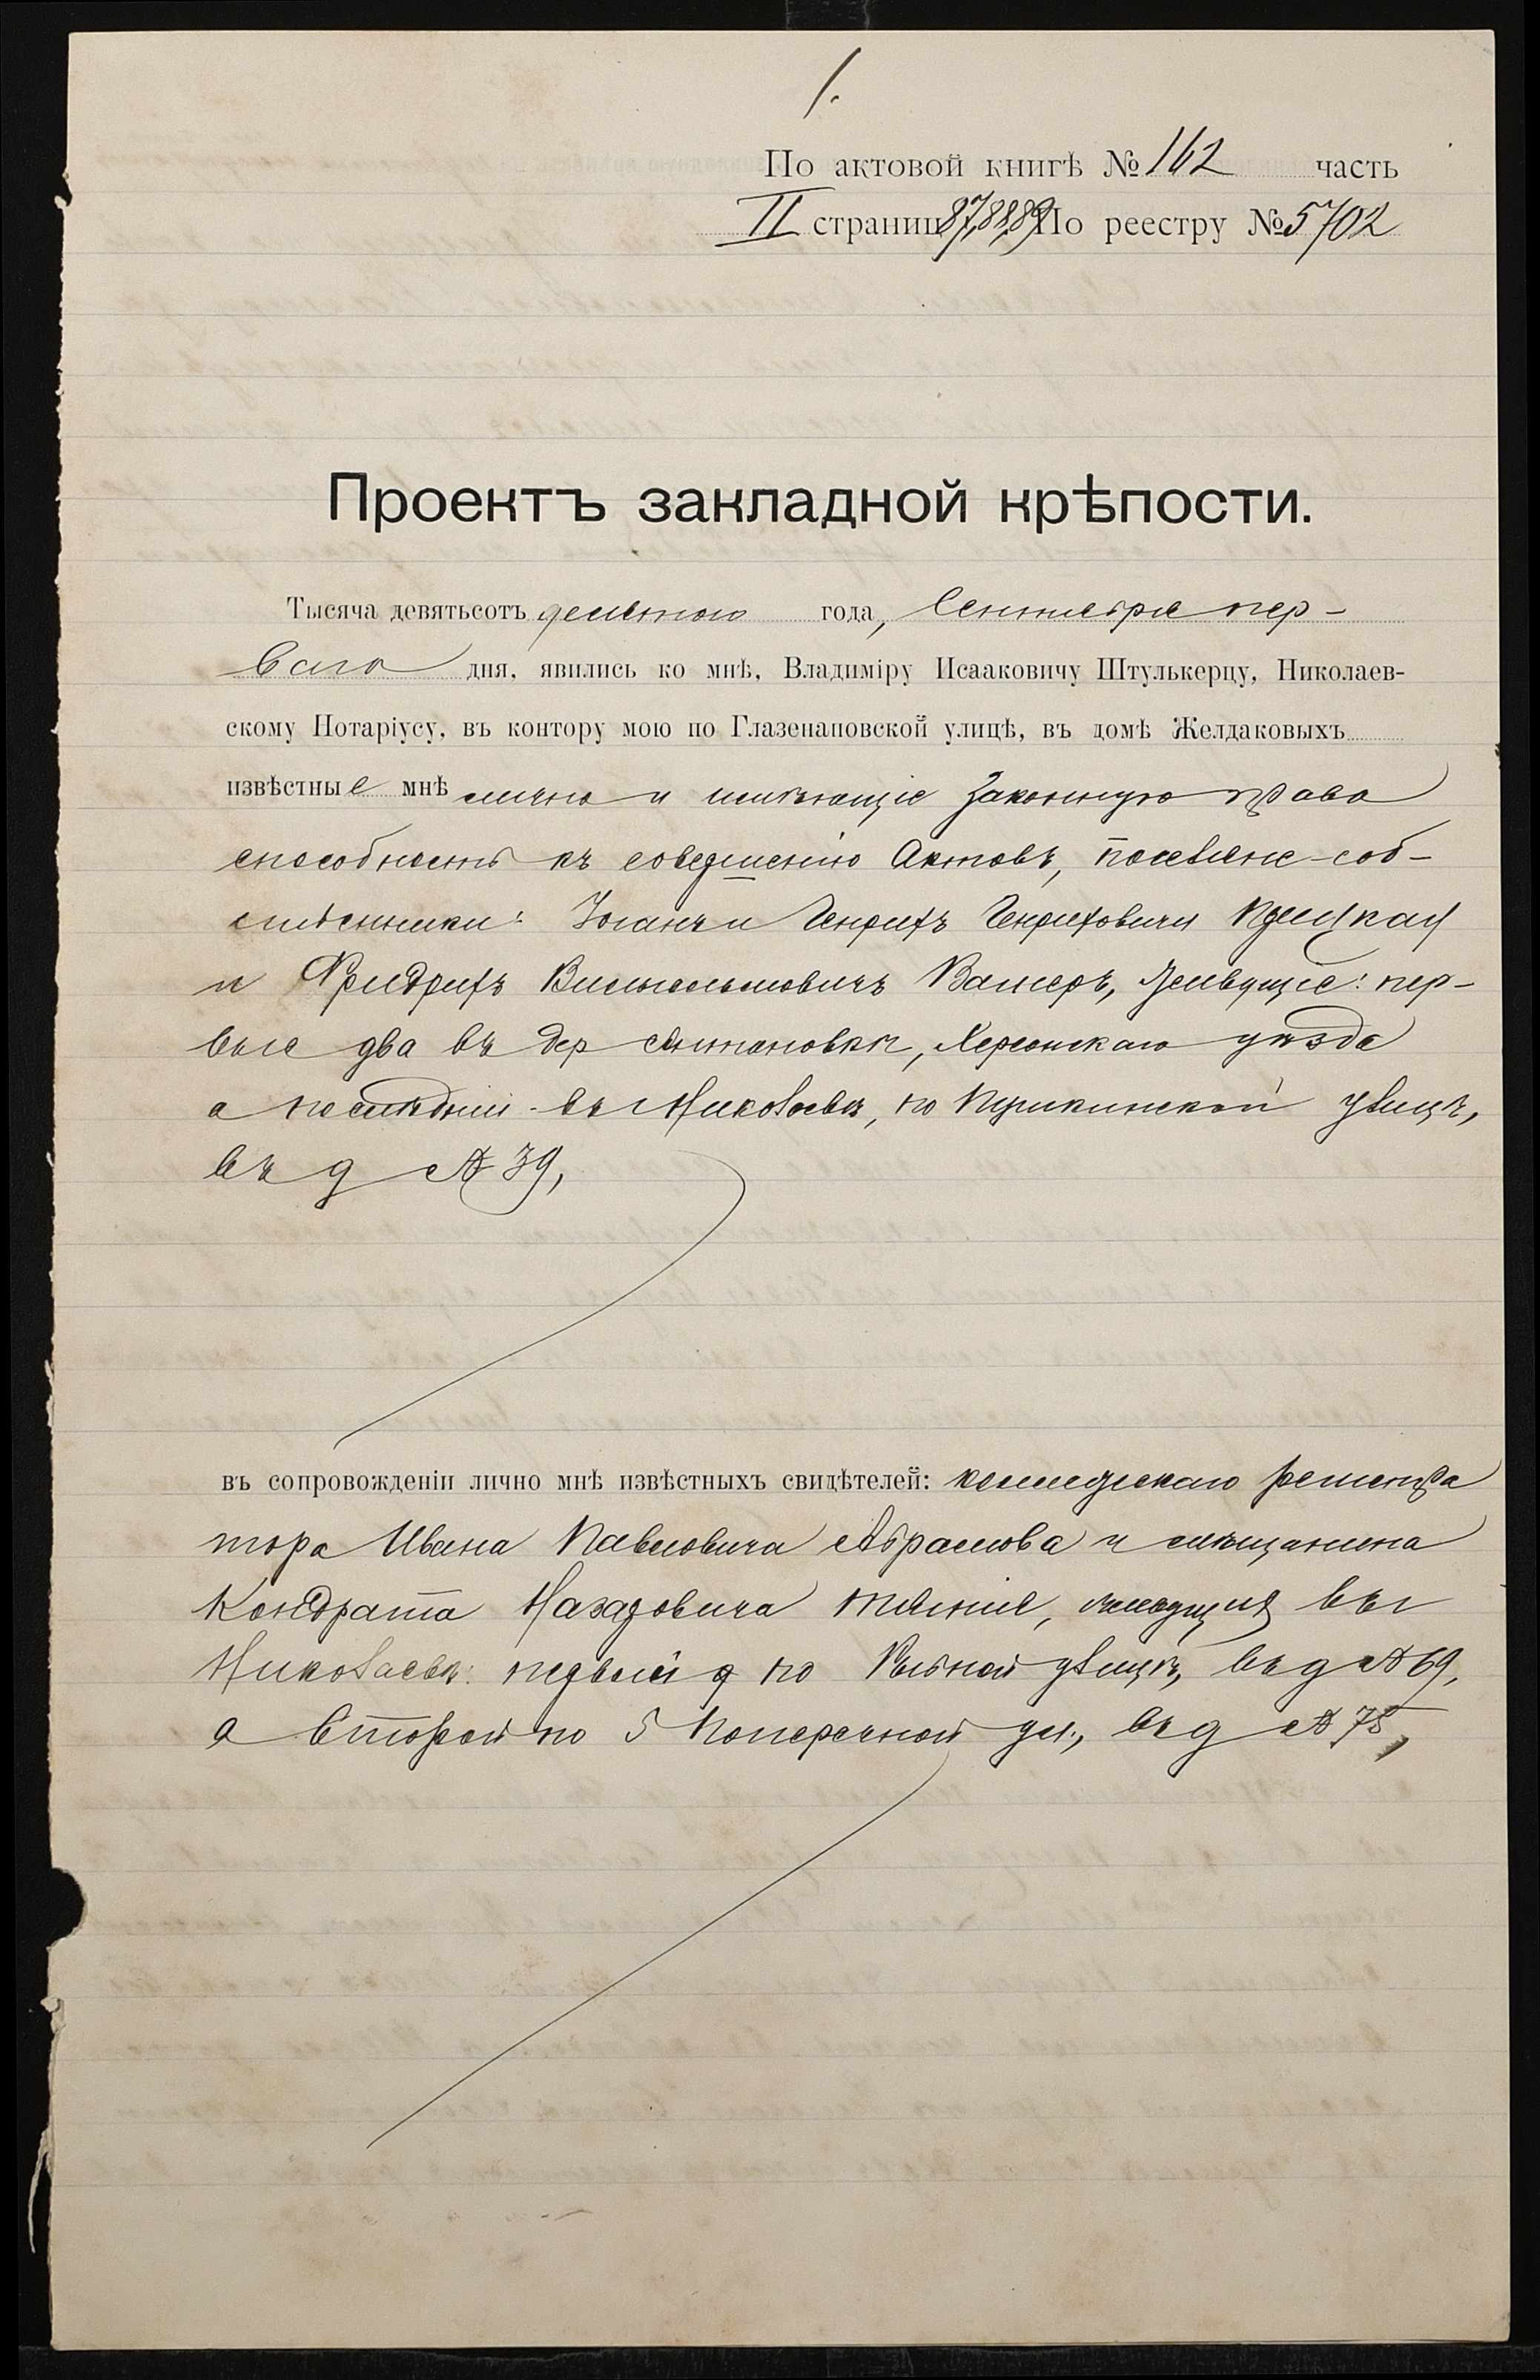 1.
По актовой книгѣ № 162 часть
II страниц 87,88,89 По реестру № 5702
Проектъ закладной крѣпости.
Тысяча девятьсотъ девятаго года, Сентября пер-
ваго дня, явились ко мнѣ, Владиміру Исааковичу Штулькерцу, Николаев-
скому Нотаріусу, въ контору мою по Глазенаповской улицѣ, въ домѣ Желдаковыхъ
извѣстные мнѣ лично и имѣющіе законную право
способность къ совершенію актовъ, поселяне-соб-
ственники: Іоганъ и Генрихъ Генриховичи
и Фридрихъ Вильгельмовичъ Вагнеръ, живущіе: пер-
вые два въ дер Антоновкѣ, Херсонскаго уѣзда
а послѣдній въ Николаевѣ, по Пушкинской улицѣ,
въ д № 39,
въ сопровожденіи лично мнѣ извѣстныхъ свидѣтелей: коллежскаго регистра
тора Ивана Павловича Абрамова и мѣщанина
Кондрата Назаровича живущихъ въ
Николаевѣ: первый по Рыбной улицѣ, въ д № 69,
а второй по 5 Поперечной ул., въ д № 78,